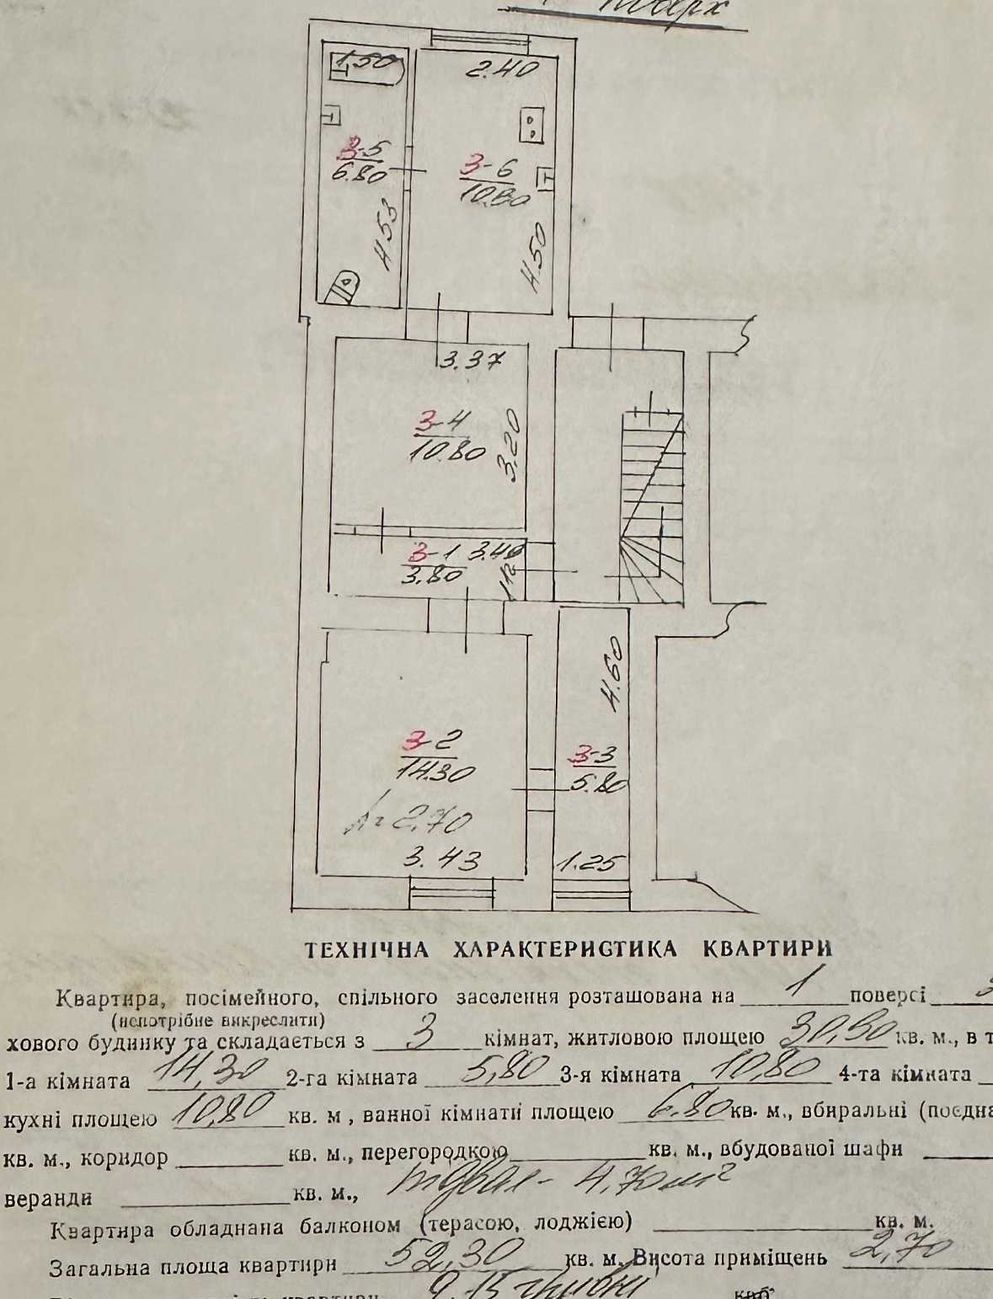 1 поверх
1.50
2.40
3-5
6.80
3-6
10.80
4.53
4.50
3.37
3-4
10.80
3.20
3-1 3.40
3.80
1.12
4.60
3-2
14.30
3-3
5.80
h=2,70
3.43
1.25
ТЕХНІЧНА ХАРАКТЕРИСТИКА КВАРТИРИ
Квартира, посімейного, спільного заселення розташована на 1 поверсі
(непотрібне викреслити)
хового будинку та складається з 3 кімнат, житловою площею 30,90 кв. м., в т
1-а кімната 14,30 2-га кімната 5,80 3-я кімната 10,80 4-та кімната
кухні площею 10,80 кв. м, ванної кімнати площею 6.80 кв. м., вбиральні (поєдна
кв. м., коридор кв. м., перегородкою кв. м., вбудованої шафи
веранди кв. м., підвал - 4,70 м²
Квартира обладнана балконом (терасою, лоджією) кв. м.
Загальна площа квартири 52,30 кв. м. Висота приміщень 2,70